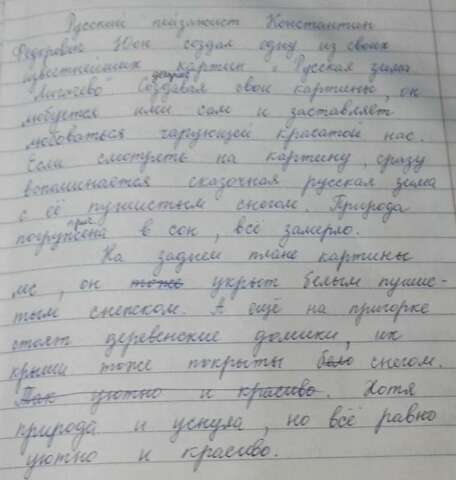 Русский пейзажист Константин
Федорович Юон создал одну из своих
известнейших картин „Русская зима.
Лигачево". Создавая свои картины, он
любуется ими сам и заставляет
любоваться чарующей красатой нас.
Если смотреть на картину, сразу
вспоминается сказочная русская зима
с её пушистым снегом. Природа
погружена в сон, всё замерло.
На заднем плане картины
лес, он тоже укрыт белым пушис-
тым снежком. А ещё на пригорке
стоят деревенские домики, их
крыши тоже покрыты бело снегом.
Так уютно и красиво. Хотя
природа и уснула, но всё равно
уютно и красиво.